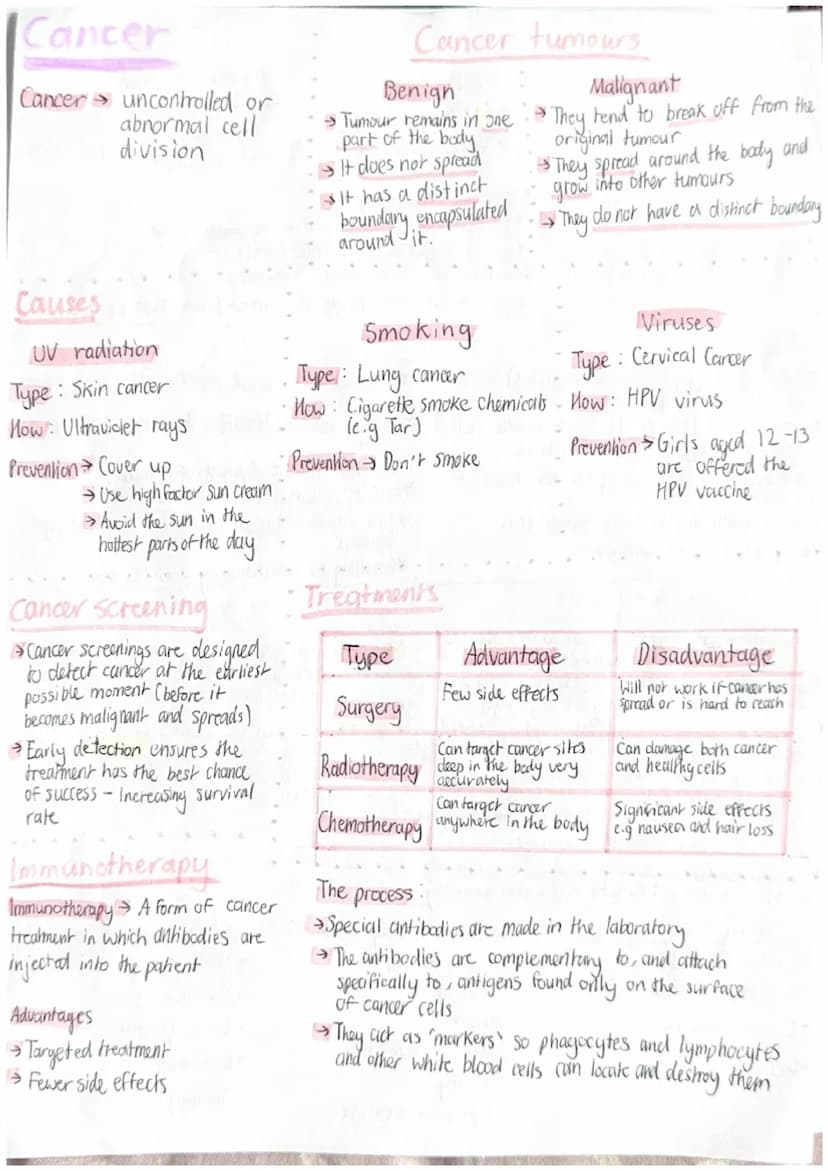 Cancer
Cancer → uncontrolled or
abnormal cell
division
Cancer tumours
Benign
→ Tumour remains in one
part of the body
→ It does not spread
→ It has a distinct
boundary encapsulated
around it.
Malignant
→ They tend to break off from the
original tumour
→ They spread around the body and
grow into other tumours
→ They do not have a distinct boundary
Causes
UV radiation
Type : Skin cancer
How : Ultraviolet rays
Prevention → Cover up
→ Use high factor sun cream
→ Avoid the sun in the
hottest parts of the day
Smoking
Type : Lung cancer
How : Cigarette smoke chemicals
(e.g Tar)
Prevention → Don't smoke
Viruses
Type : Cervical Cancer
How : HPV virus
Prevention → Girls aged 12-13
are offered the
HPV vaccine
Cancer screening
→ Cancer screenings are designed
to detect cancer at the earliest
possible moment (before it
becomes malignant and spreads)
→ Early detection ensures the
treatment has the best chance
of success - increasing survival
rate
Treatments
Type Advantage Disadvantage
Surgery
Few side effects
Will not work if cancer has
spread or is hard to reach
Radiotherapy
Can target cancer sites
deep in the body very
accurately
Can damage both cancer
and healthy cells
Chemotherapy
Can target cancer
anywhere in the body
Significant side effects
e.g nausea and hair loss
Immunotherapy
Immunotherapy → A form of cancer
treatment in which antibodies are
injected into the patient
Advantages
→ Targeted treatment
→ Fewer side effects
The process :
→ Special antibodies are made in the laboratory
→ The antibodies are complementary to, and attach
specifically to, antigens found only on the surface
of cancer cells
→ They act as 'markers' so phagocytes and lymphocytes
and other white blood cells can locate and destroy them